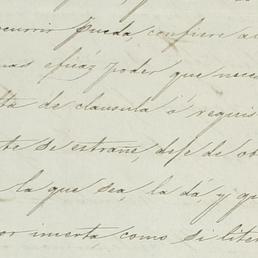 ocurrir pueda, confiere al
mas eficáz poder que nece
ta de clausula ó requis
te de estrañe, deje de ob
la que sea, la dá, y qu
or inserta como si liter